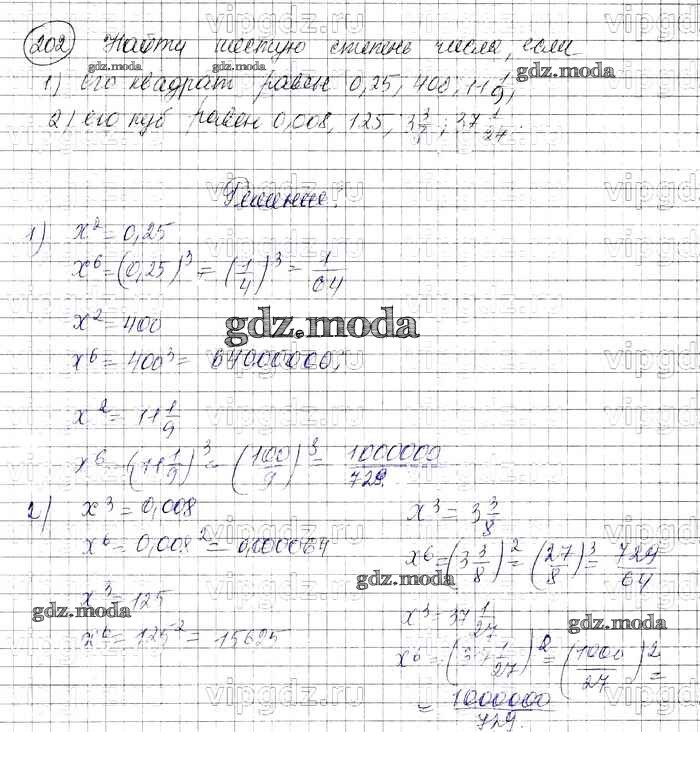 202 Найти шестую степень числа, если
1) его квадрат равен 0,25, 400, 11 1/9,
2) его куб равен 0,008, 125, 3 3/8, 37 1/27.
Решение.
1) x² = 0,25
x⁶ = (0,25)³ = (1/4)³ = 1/64
x² = 400
gdz.moda
x⁶ = 400³ = 64000000,
x² = 11 1/9
x⁶ = (11 1/9)³ = (100/9)³ = 1000000/729.
2) x³ = 0,008
x⁶ = 0,008² = 0,000064
x³ = 125
x⁶ = 125² = 15625
x³ = 3 3/8
x⁶ = (3 3/8)² = (27/8)³ = 729/64
x³ = 37 1/27
x⁶ = (37 1/27)² = (1000/27)² =
= 1000000/729.
gdz.moda
gdz.moda
gdz.moda
gdz.moda
gdz.moda
gdz.moda
vipgdz.ru